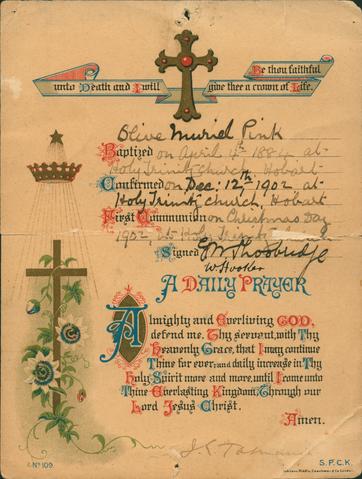 Be thou faithful
unto Death and I will give thee a crown of Life.
Olive Muriel Pink
Baptized on April 4th 1884 at
Holy Trinity Church, Hobart
Confirmed on Dec: 12th 1902, at
Holy Trinity Church, Hobart
First Communion on Christmas Day
1902, at Holy Trinity Church
Signed
A DAILY PRAYER
Almighty and Everliving GOD,
defend me, Thy servent, with Thy
Heavenly Grace, that I may continue
Thine for ever: and daily increase in Thy
Holy Spirit more and more, until I come unto
Thine Everlasting Kingdom; Through our
Lord Jesus Christ.
Amen.
No 109.
S.P.C.K.